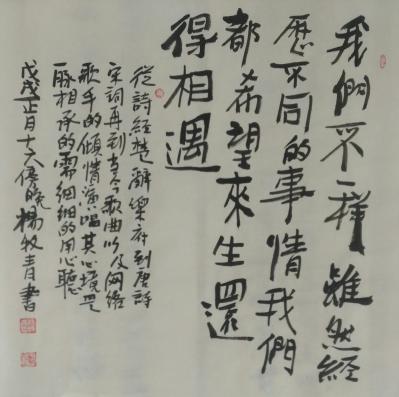 我們不一樣雖然經
歷不同的事情我們
都希望來生還
得相遇
從詩經楚辭樂府到唐詩
宋詞再到古今歌曲以及网络
歌手的傾情演唱其心境是一
脈相承的需細細的用心聽
戊戌正月十六傍晚楊牧青書